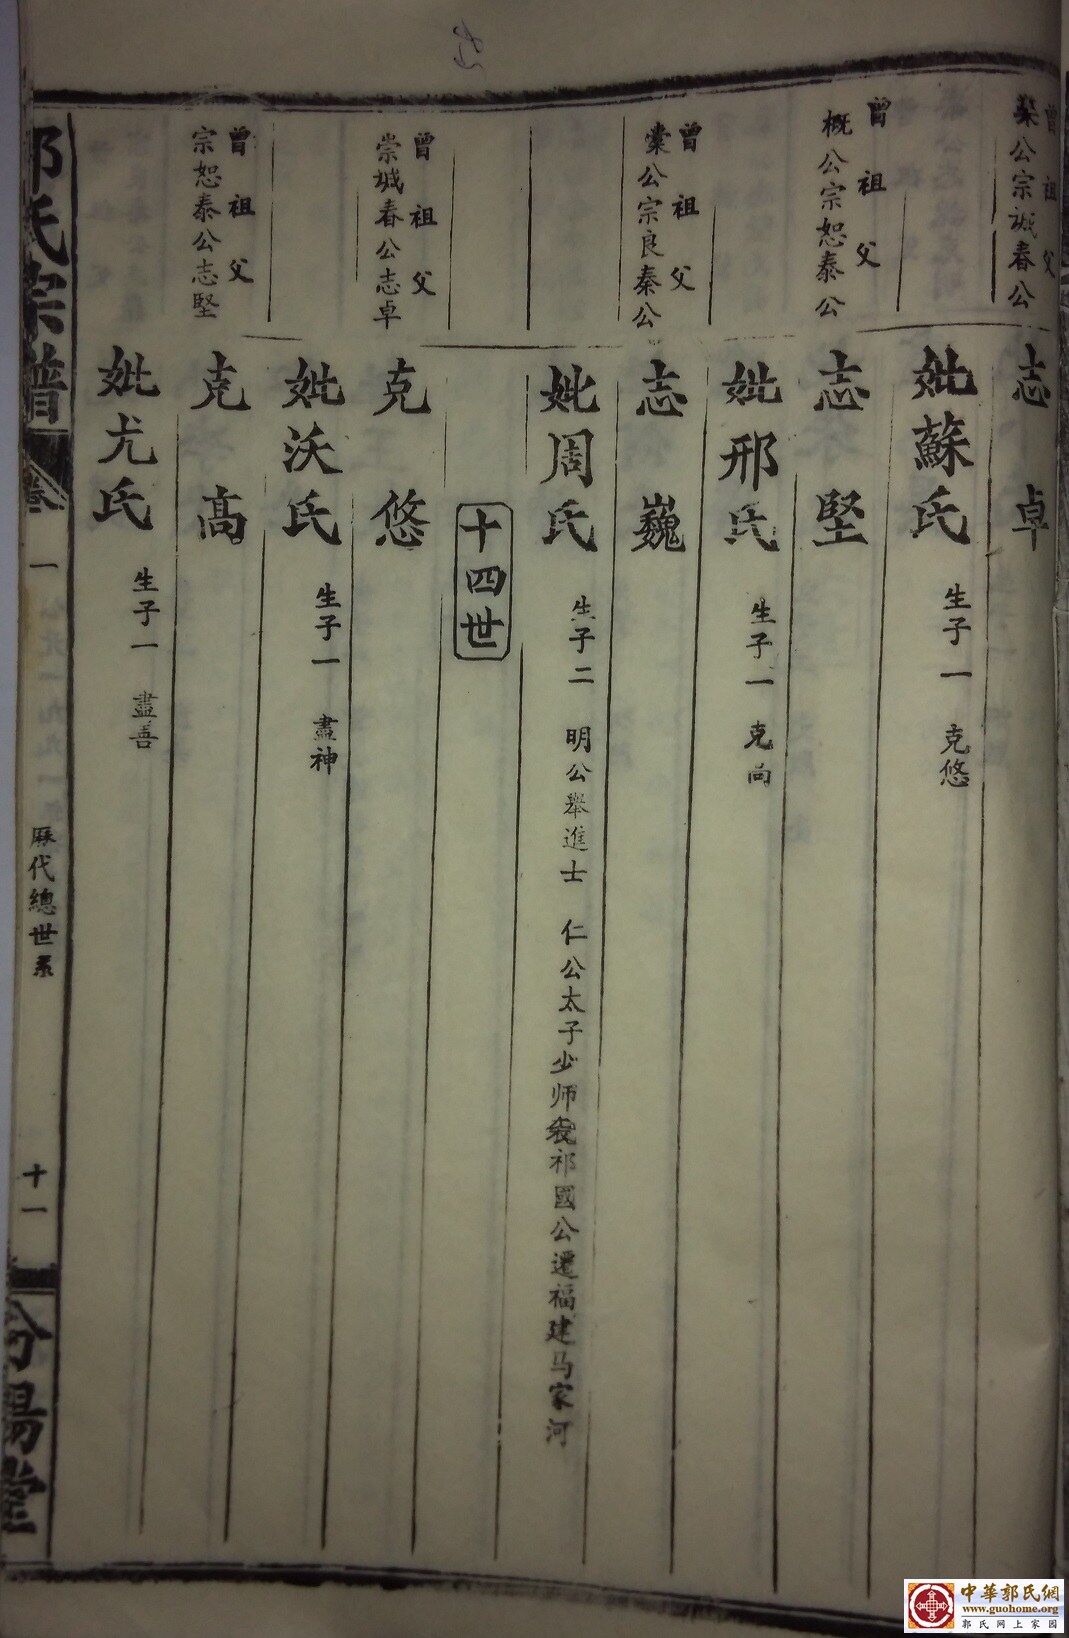 曾祖父
公宗誠春公
志卓
妣蘇氏
生子一 克悠
曾祖父
概公宗恕泰公
志堅
妣邢氏
生子一 克向
曾祖父
棠公宗良秦公
志巍
妣周氏
生子二 明公舉進士 仁公太子少师 祁國公遷福建马家河
十四世
曾祖父
崇城春公志卓
克悠
妣沃氏
生子一 盡神
曾祖父
宗恕泰公志堅
克高
妣尤氏
生子一 盡善
郭氏宗譜
卷一
厤代總世系
十一
汾陽堂
中華郭氏網
www.guohome.org
郭氏网上家园